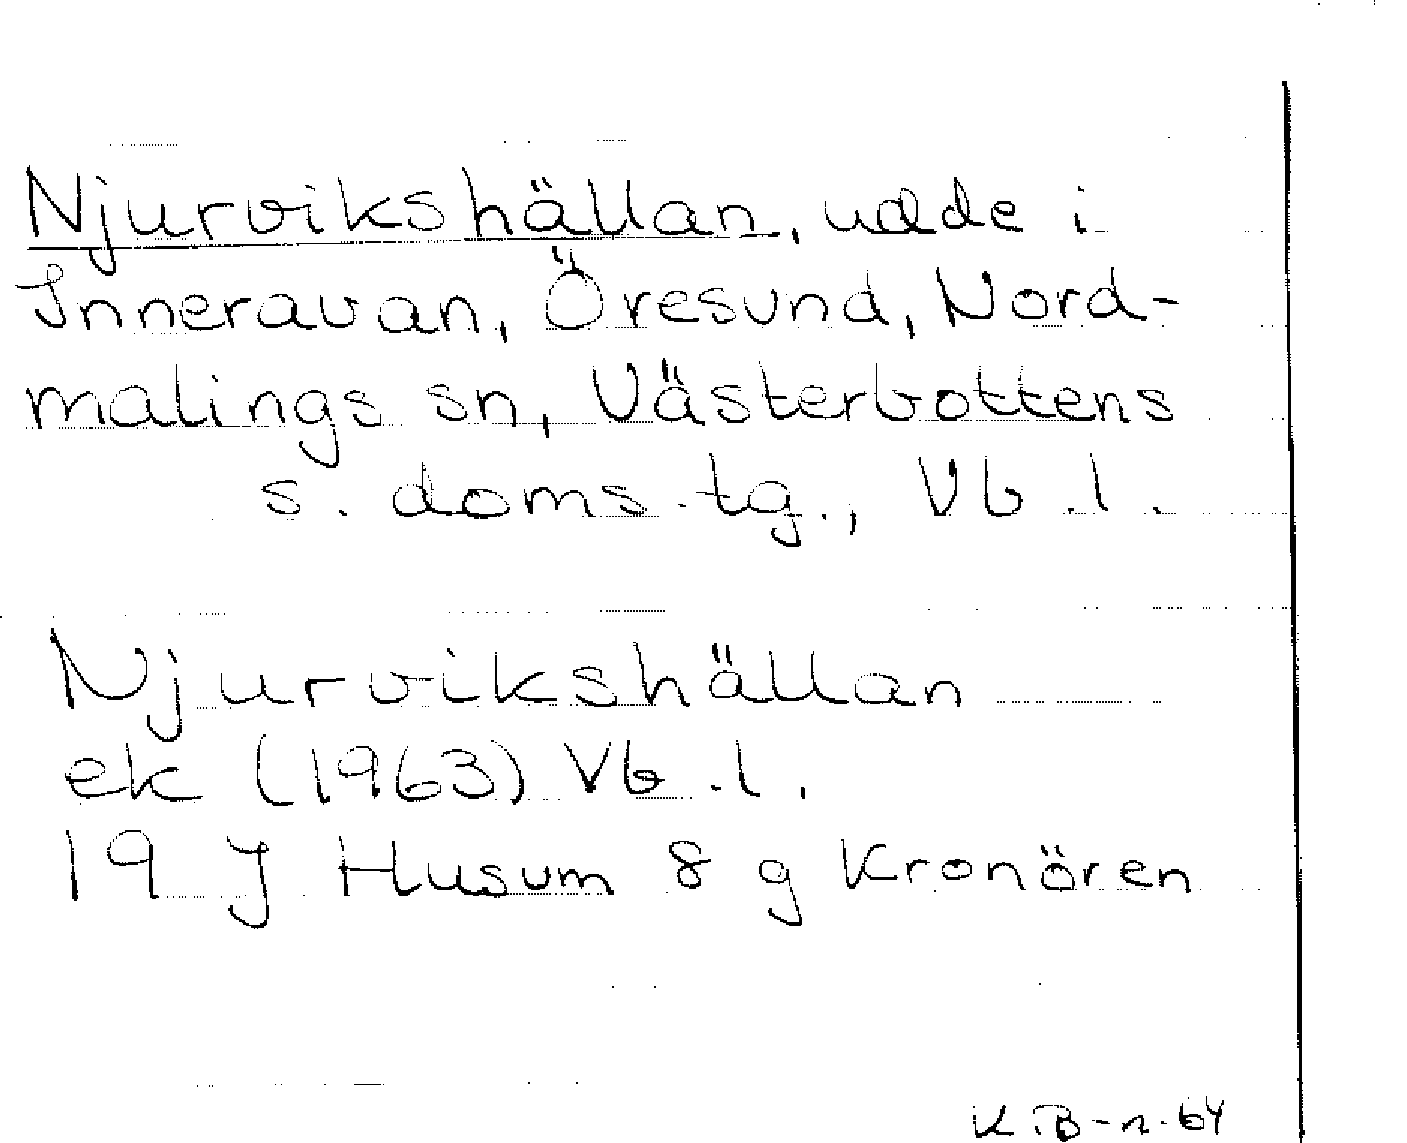 Njurvikshällan, udde i
Inneravan, Öresund, Nord-
malings sn, Västerbottens
s. doms.tg., Vb.l.
Njurvikshällan
ek (1963) Vb.l.
19 J Husum 8 g Kronören
K.B-n.64